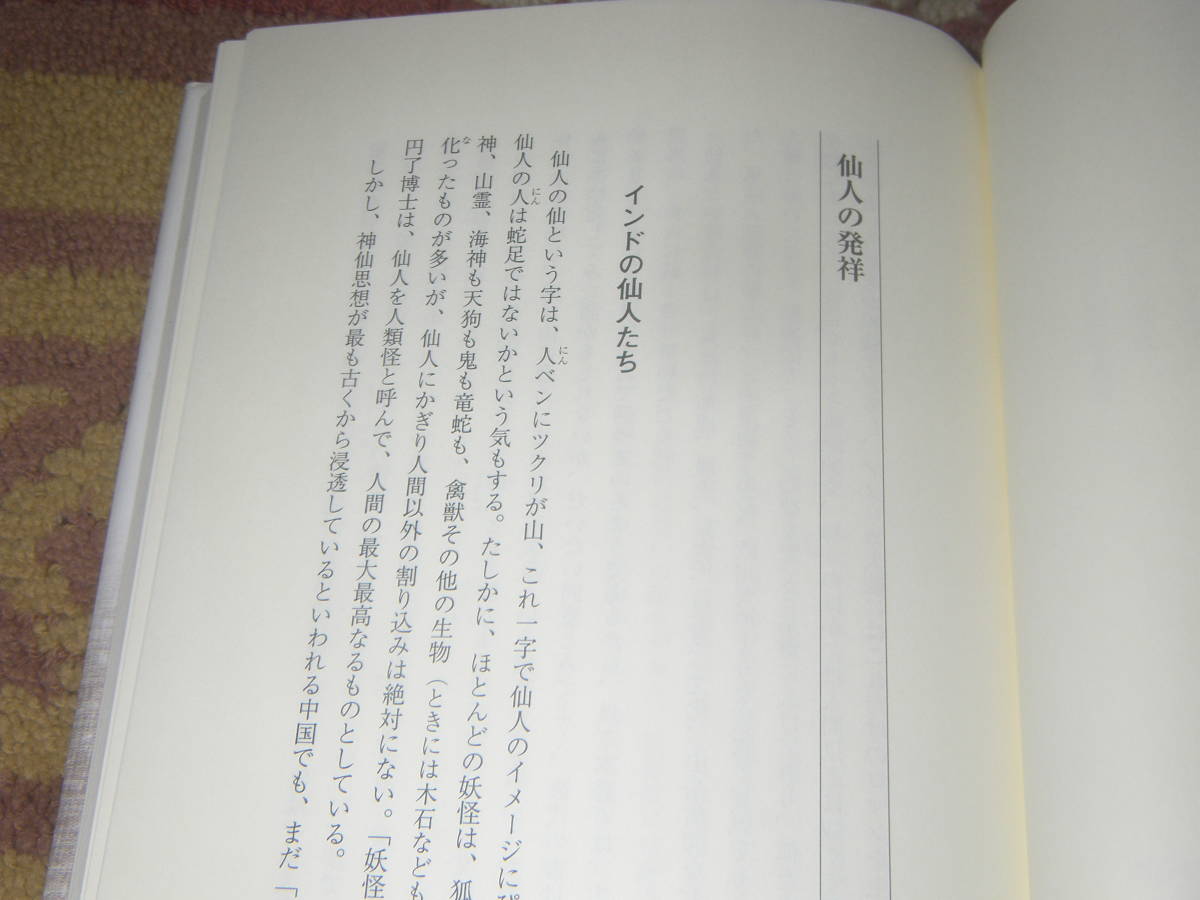 仙人の発祥
インドの仙人たち
仙人の仙という字は、人ベンにツクリが山、これ一字で仙人のイメージにぴ
仙人の人は蛇足ではないかという気もする。たしかに、ほとんどの妖怪は、狐
神、山霊、海神も天狗も鬼も竜蛇も、禽獣その他の生物（ときには木石なども
化ったものが多いが、仙人にかぎり人間以外の割り込みは絶対にない。「妖怪
円了博士は、仙人を人類怪と呼んで、人間の最大最高なるものとしている。
しかし、神仙思想が最も古くから浸透しているといわれる中国でも、まだ「